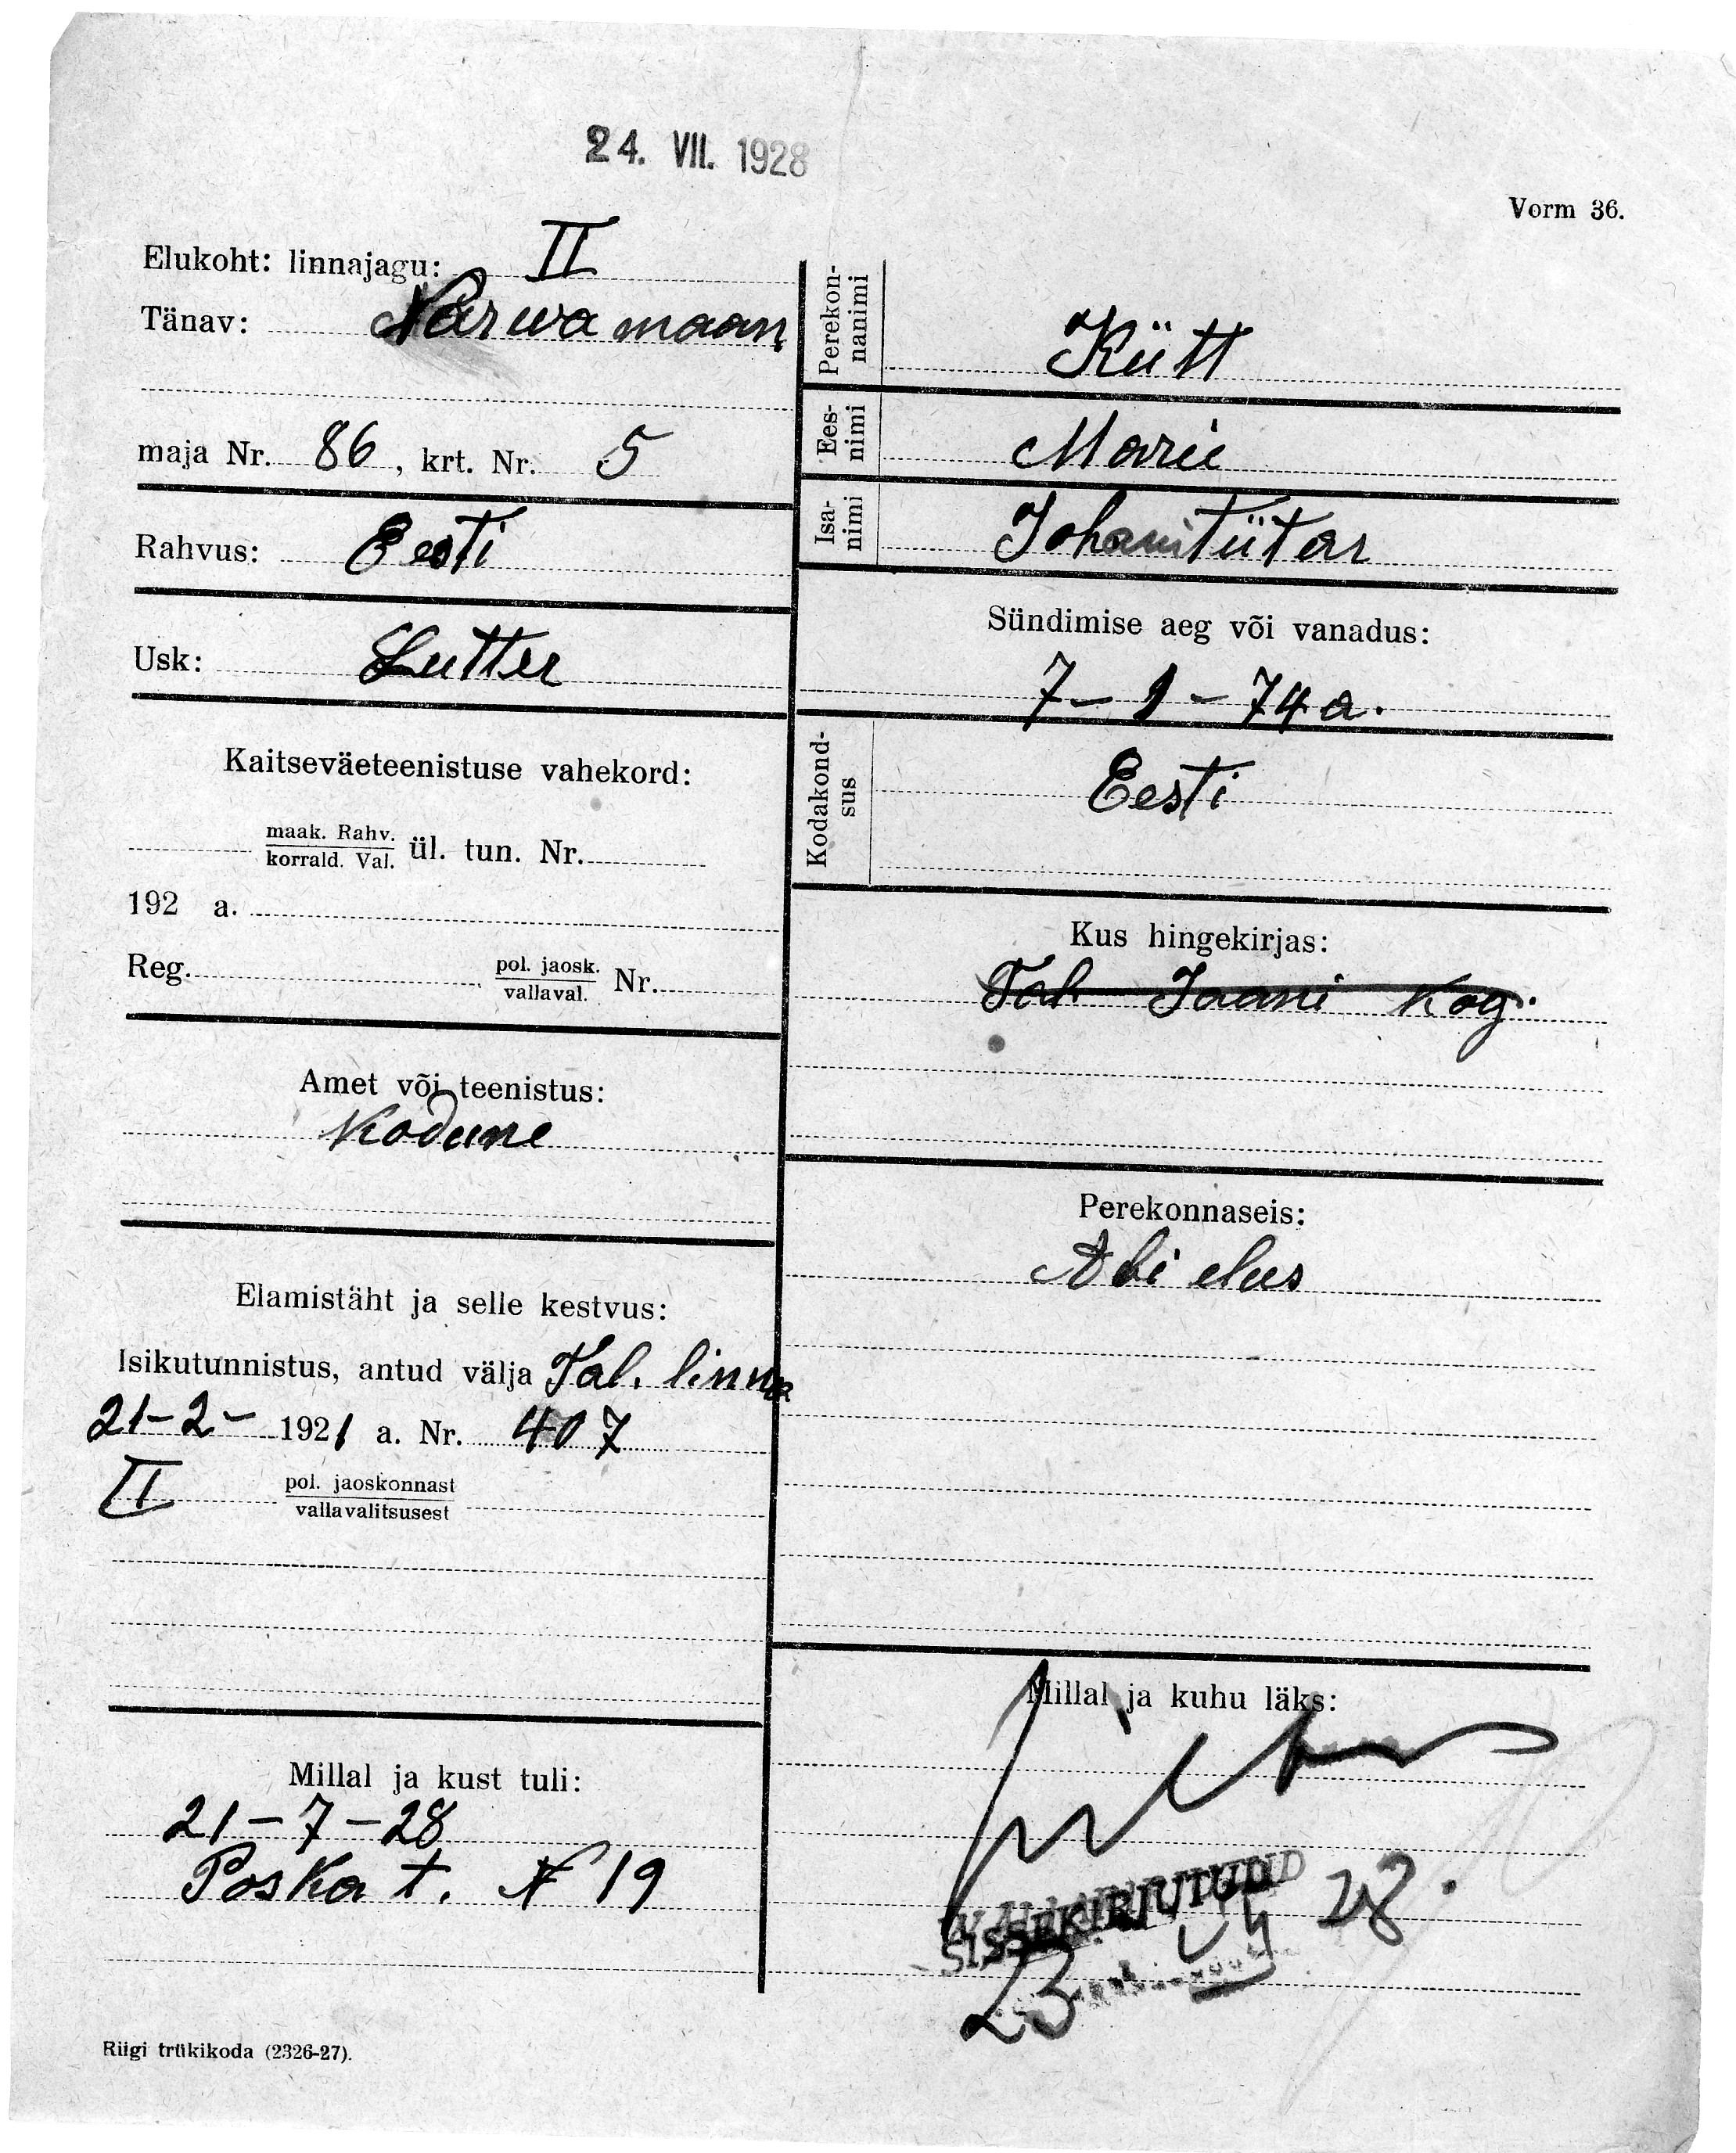 24. VII. 1928
Vorm 36.
Elukoht: linnajagu: II
Tänav: Narwa maan
maja Nr. 86, krt. Nr. 5
Rahvus: Eesti
Usk: Lutter
Kaitseväeteenistuse vahekord:
maak. Rahv.
korrald. Val. ül. tun. Nr.
192 a.
Reg. pol. jaosk.
vallaval. Nr.
Amet või teenistus:
Kodune
Elamistäht ja selle kestvus:
Isikutunnistus, antud välja Tal. linna
21-2- 1921 a. Nr. 407
II pol. jaoskonnast
vallavalitsusest
Millal ja kust tuli:
21-7-28
Poska t. N 19
Riigi trükikoda (2326-27).
Perekon-
nanimi Kütt
Ees-
nimi Marie
Isa-
nimi Johanitütar
Sündimise aeg või vanadus:
7-1-74 a.
Kodakond-
sus Eesti
Kus hingekirjas:
Tal. Jaani Kog.
Perekonnaseis:
Abi elus
Millal ja kuhu läks:
SISSEKIRJUTUD
23 28.